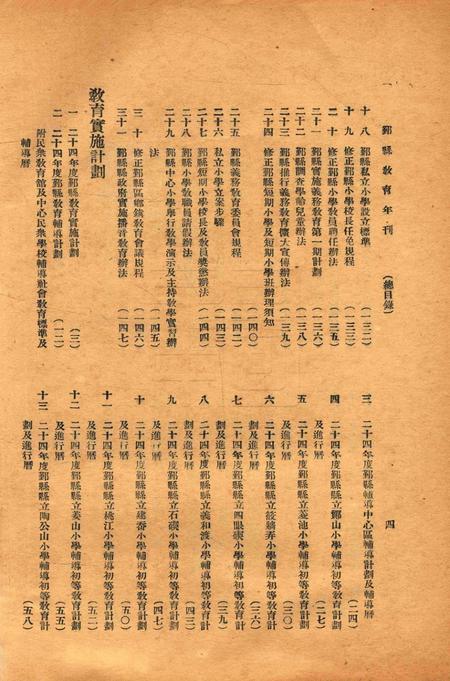 鄞縣敎育年刊 (總目錄) 四
十八 鄞縣私立小學設立標準 (一三二)
十九 修正鄞縣小學校長任免規程 (一三三)
二十 修正鄞縣小學敎員聘任辦法 (一三五)
二十一 鄞縣實施義務敎育第一期計劃 (一三六)
二十二 鄞縣調查學齡兒童辦法 (一三八)
二十三 鄞縣推行義務敎育擴大宣傳辦法 (一三九)
二十四 修正鄞縣短期小學及短期小學班辦理須知
(一四〇)
二十五 鄞縣義務敎育委員會規程 (一四二)
二十六 私立小學立案步驟 (一四三)
二十七 鄞縣短期小學校長及敎員獎懲辦法
(一四四)
二十八 鄞縣小學敎職員請假辦法
二十九 鄞縣中心小學舉行敎學演示及主持敎學實習辦
法 (一四五)
三十 修正鄞縣區鄉鎭敎育會議規程 (一四六)
三十一 鄞縣縣政府實施播音敎育辦法 (一四七)
敎育實施計劃
一 二十四年度鄞縣敎育實施計劃 (三)
二 二十四年度鄞縣敎育輔導計劃 (一二)
附民衆敎育館及中心民衆學校輔導社會敎育標準及
輔導曆
三 二十四年度鄞縣輔導中心區輔導計劃及輔導曆
(二四)
四 二十四年度鄞縣縣立鄮山小學輔導初等敎育計劃
及進行曆 (二七)
五 二十四年度鄞縣縣立菱池小學輔導初等敎育計劃
及進行曆 (三〇)
六 二十四年度鄞縣縣立筱牆弄小學輔導初等敎育計
劃及進行曆 (三六)
七 二十四年度鄞縣縣立四眼碶小學輔導初等敎育計
劃及進行曆 (三九)
八 二十四年度鄞縣縣立義和渡小學輔導初等敎育計
劃及進行曆 (四三)
九 二十四年度鄞縣縣立石碶小學輔導初等敎育計劃
及進行曆 (四七)
十 二十四年度鄞縣縣立建岙小學輔導初等敎育計劃
及進行曆 (五〇)
十一 二十四年度鄞縣縣立桃江小學輔導初等敎育計劃
及進行曆 (五二)
十二 二十四年度鄞縣縣立姜山小學輔導初等敎育計劃
及進行曆 (五五)
十三 二十四年度鄞縣縣立陶公山小學輔導初等敎育計
劃及進行曆 (五八)